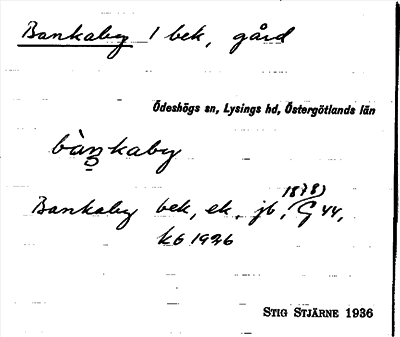 Bankaby 1 bek, gård
Ödeshögs sn, Lysings hd, Östergötlands län
bàŋkaby
1878)
Bankaby bek, ek, jb, G 44,
kb 1926
STIG STJÄRNE 1936